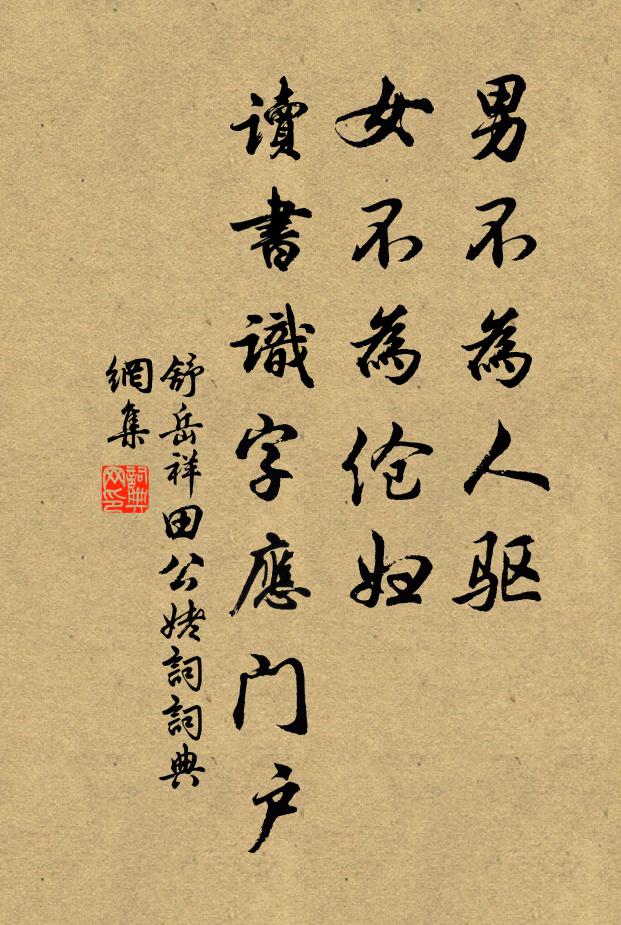 男不為人驱
女不為伧妇
讀書識字應门户
舒岳祥田公姥詞詞典
網集
詞典
网印